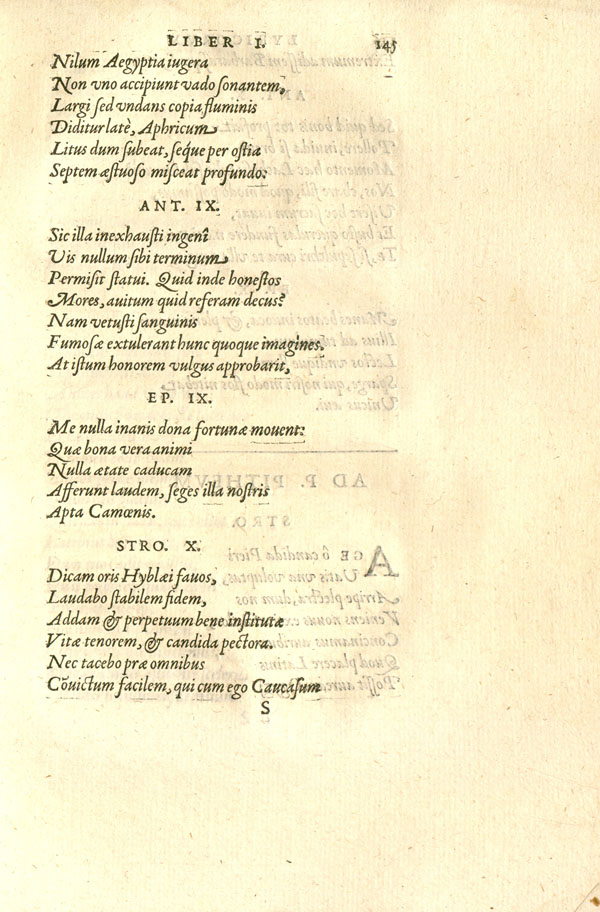 LIBER I. 145
Nilum Aegyptia iugera
Non vno accipiunt vado sonantem,
Largi sed vndans copia fluminis
Diditur latè, Aphricum
Litus dum subeat, seque per ostia
Septem æstuoso misceat profundo:
ANT. IX.
Sic illa inexhausti ingenî
Vis nullum sibi terminum
Permisit statui. Quid inde honestos
Mores, auitum quid referam decus?
Nam vetusti sanguinis
Fumosæ extulerant hunc quoque imagines.
At istum honorem vulgus approbarit,
EP. IX.
Me nulla inanis dona fortunæ mouent:
Quæ bona vera animi
Nulla ætate caducam
Afferunt laudem, seges illa nostris
Apta Camœnis.
STRO. X.
Dicam oris Hyblæi fauos,
Laudabo stabilem fidem,
Addam & perpetuum bene institutæ
Vitæ tenorem, & candida pectora.
Nec tacebo præ omnibus
Cōuictum facilem, qui cum ego Caucasum
S